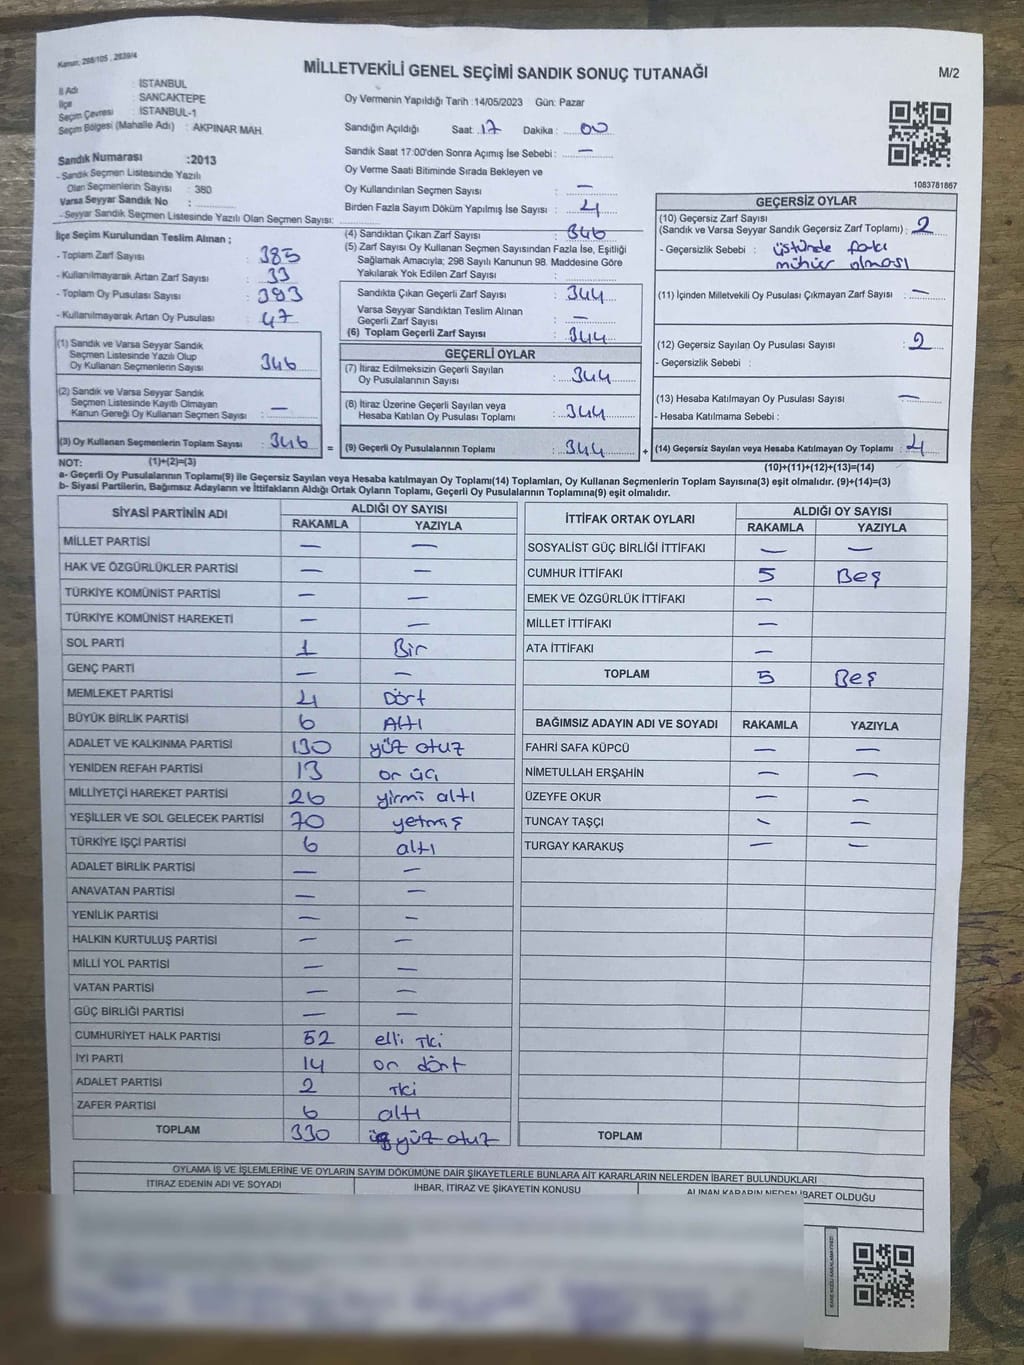 Kanun: 298/105 , 2839/4
MİLLETVEKİLİ GENEL SEÇİMİ SANDIK SONUÇ TUTANAĞI
M/2
İl Adı : İSTANBUL
İlçe : SANCAKTEPE
Seçim Çevresi : İSTANBUL-1
Seçim Bölgesi (Mahalle Adı) : AKPINAR MAH.
Oy Vermenin Yapıldığı Tarih :14/05/2023 Gün: Pazar
Sandığın Açıldığı Saat: 17 Dakika : 00
Sandık Saat 17:00'den Sonra Açımış İse Sebebi : —
Oy Verme Saati Bitiminde Sırada Bekleyen ve
Oy Kullandırılan Seçmen Sayısı : —
Birden Fazla Sayım Döküm Yapılmış İse Sayısı : 4
1083781867
Sandık Numarası :2013
- Sandık Seçmen Listesinde Yazılı
Olan Seçmenlerin Sayısı : 380
Varsa Seyyar Sandık No :
- Seyyar Sandık Seçmen Listesinde Yazılı Olan Seçmen Sayısı:
İlçe Seçim Kurulundan Teslim Alınan ;
- Toplam Zarf Sayısı : 385
- Kullanılmayarak Artan Zarf Sayısı : 33
- Toplam Oy Pusulası Sayısı : 393
- Kullanılmayarak Artan Oy Pusulası : 47
(1) Sandık ve Varsa Seyyar Sandık
Seçmen Listesinde Yazılı Olup
Oy Kullanan Seçmenlerin Sayısı : 346
(2) Sandık ve Varsa Seyyar Sandık
Seçmen Listesinde Kayıtlı Olmayan
Kanun Gereği Oy Kullanan Seçmen Sayısı : —
(3) Oy Kullanan Seçmenlerin Toplam Sayısı : 346 =
(4) Sandıktan Çıkan Zarf Sayısı : 346
(5) Zarf Sayısı Oy Kullanan Seçmen Sayısından Fazla İse, Eşitliği
Sağlamak Amacıyla; 298 Sayılı Kanunun 98. Maddesine Göre
Yakılarak Yok Edilen Zarf Sayısı :
Sandıkta Çıkan Geçerli Zarf Sayısı : 344
Varsa Seyyar Sandıktan Teslim Alınan
Geçerli Zarf Sayısı : —
(6) Toplam Geçerli Zarf Sayısı : 344
GEÇERLİ OYLAR
(7) İtiraz Edilmeksizin Geçerli Sayılan
Oy Pusulalarının Sayısı : 344
(8) İtiraz Üzerine Geçerli Sayılan veya
Hesaba Katılan Oy Pusulası Toplamı : 344
(9) Geçerli Oy Pusulalarının Toplamı : 344 +
GEÇERSİZ OYLAR
(10) Geçersiz Zarf Sayısı
(Sandık ve Varsa Seyyar Sandık Geçersiz Zarf Toplamı) : 2
- Geçersizlik Sebebi : üstünde
mühür olması
(11) İçinden Milletvekili Oy Pusulası Çıkmayan Zarf Sayısı : —
(12) Geçersiz Sayılan Oy Pusulası Sayısı : 2
- Geçersizlik Sebebi :
(13) Hesaba Katılmayan Oy Pusulası Sayısı : —
- Hesaba Katılmama Sebebi :
(14) Geçersiz Sayılan veya Hesaba Katılmayan Oy Toplamı : 4
NOT: (1)+(2)=(3)
(10)+(11)+(12)+(13)=(14)
a- Geçerli Oy Pusulalarının Toplamı(9) ile Geçersiz Sayılan veya Hesaba Katılmayan Oy Toplamı(14) Toplamları, Oy Kullanan Seçmenlerin Toplam Sayısına(3) eşit olmalıdır. (9)+(14)=(3)
b- Siyasi Partilerin, Bağımsız Adayların ve İttifakların Aldığı Ortak Oyların Toplamı, Geçerli Oy Pusulalarının Toplamına(9) eşit olmalıdır.
SİYASİ PARTİNİN ADI
ALDIĞI OY SAYISI
RAKAMLA YAZIYLA
MİLLET PARTİSİ — —
HAK VE ÖZGÜRLÜKLER PARTİSİ — —
TÜRKİYE KOMÜNİST PARTİSİ — —
TÜRKİYE KOMÜNİST HAREKETİ — —
SOL PARTİ 1 Bir
GENÇ PARTİ — —
MEMLEKET PARTİSİ 4 Dört
BÜYÜK BİRLİK PARTİSİ 6 Altı
ADALET VE KALKINMA PARTİSİ 130 yüz otuz
YENİDEN REFAH PARTİSİ 13 on üç
MİLLİYETÇİ HAREKET PARTİSİ 26 yirmi altı
YEŞİLLER VE SOL GELECEK PARTİSİ 70 yetmiş
TÜRKİYE İŞÇİ PARTİSİ 6 altı
ADALET BİRLİK PARTİSİ — —
ANAVATAN PARTİSİ — —
YENİLİK PARTİSİ — —
HALKIN KURTULUŞ PARTİSİ — —
MİLLİ YOL PARTİSİ — —
VATAN PARTİSİ — —
GÜÇ BİRLİĞİ PARTİSİ — —
CUMHURİYET HALK PARTİSİ 52 elli iki
İYİ PARTİ 14 on dört
ADALET PARTİSİ 2 iki
ZAFER PARTİSİ 6 altı
TOPLAM 330 üç yüz otuz
İTTİFAK ORTAK OYLARI
ALDIĞI OY SAYISI
RAKAMLA YAZIYLA
SOSYALİST GÜÇ BİRLİĞİ İTTİFAKI — —
CUMHUR İTTİFAKI 5 Beş
EMEK VE ÖZGÜRLÜK İTTİFAKI —
MİLLET İTTİFAKI —
ATA İTTİFAKI —
TOPLAM 5 Beş
BAĞIMSIZ ADAYIN ADI VE SOYADI RAKAMLA YAZIYLA
FAHRİ SAFA KÜPCÜ — —
NİMETULLAH ERŞAHİN — —
ÜZEYFE OKUR — —
TUNCAY TAŞÇI — —
TURGAY KARAKUŞ — —
TOPLAM
OYLAMA İŞ VE İŞLEMLERİNE VE OYLARIN SAYIM DÖKÜMÜNE DAİR ŞİKAYETLERLE BUNLARA AİT KARARLARIN NELERDEN İBARET BULUNDUKLARI
İTİRAZ EDENİN ADI VE SOYADI
İHBAR, İTİRAZ VE ŞİKAYETİN KONUSU
ALINAN KARARIN NEDEN İBARET OLDUĞU